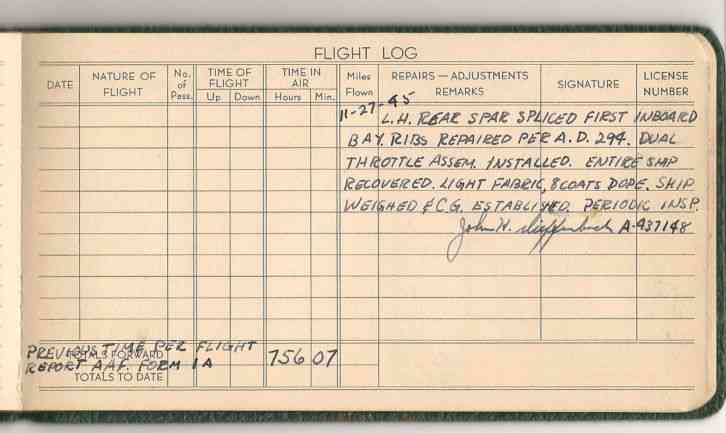 FLIGHT LOG
DATE
NATURE OF
FLIGHT
No.
of
Pass.
TIME OF
FLIGHT
Up Down
TIME IN
AIR
Hours Min.
Miles
Flown
REPAIRS — ADJUSTMENTS
REMARKS
SIGNATURE
LICENSE
NUMBER
11-27-45
L.H. REAR SPAR SPLICED FIRST INBOARD
BAY. RIBS REPAIRED PER A.D. 294. DUAL
THROTTLE ASSEM. INSTALLED. ENTIRE SHIP
RECOVERED. LIGHT FABRIC, 8 COATS DOPE. SHIP
WEIGHED & C.G. ESTABLISHED. PERIODIC INSP.
John W. Dieffenbach A-437148
PREVIOUS TIME PER FLIGHT
TOTALS FORWARD
REPORT AAF. FORM 1A
756 07
TOTALS TO DATE